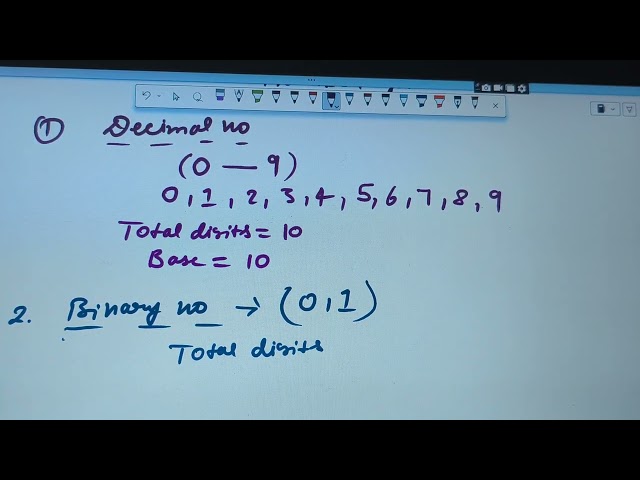 ① Decimal no
(0 — 9)
0, 1, 2, 3, 4, 5, 6, 7, 8, 9
Total digits = 10
Base = 10
2. Binary no → (0, 1)
Total digits